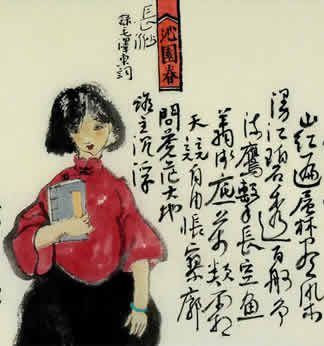 山红遍层林尽染
漫江碧透百舸争
流鷹擊長空魚
翔浅底万類霜
天竞自由悵寥廓
問蒼茫大地
誰主沉浮
沁園春
長沙
錄毛澤東詞